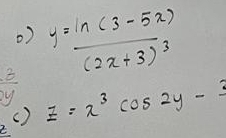 b) y = ln (3 - 5x)
(2x + 3)³
c) z = x³ cos 2y -